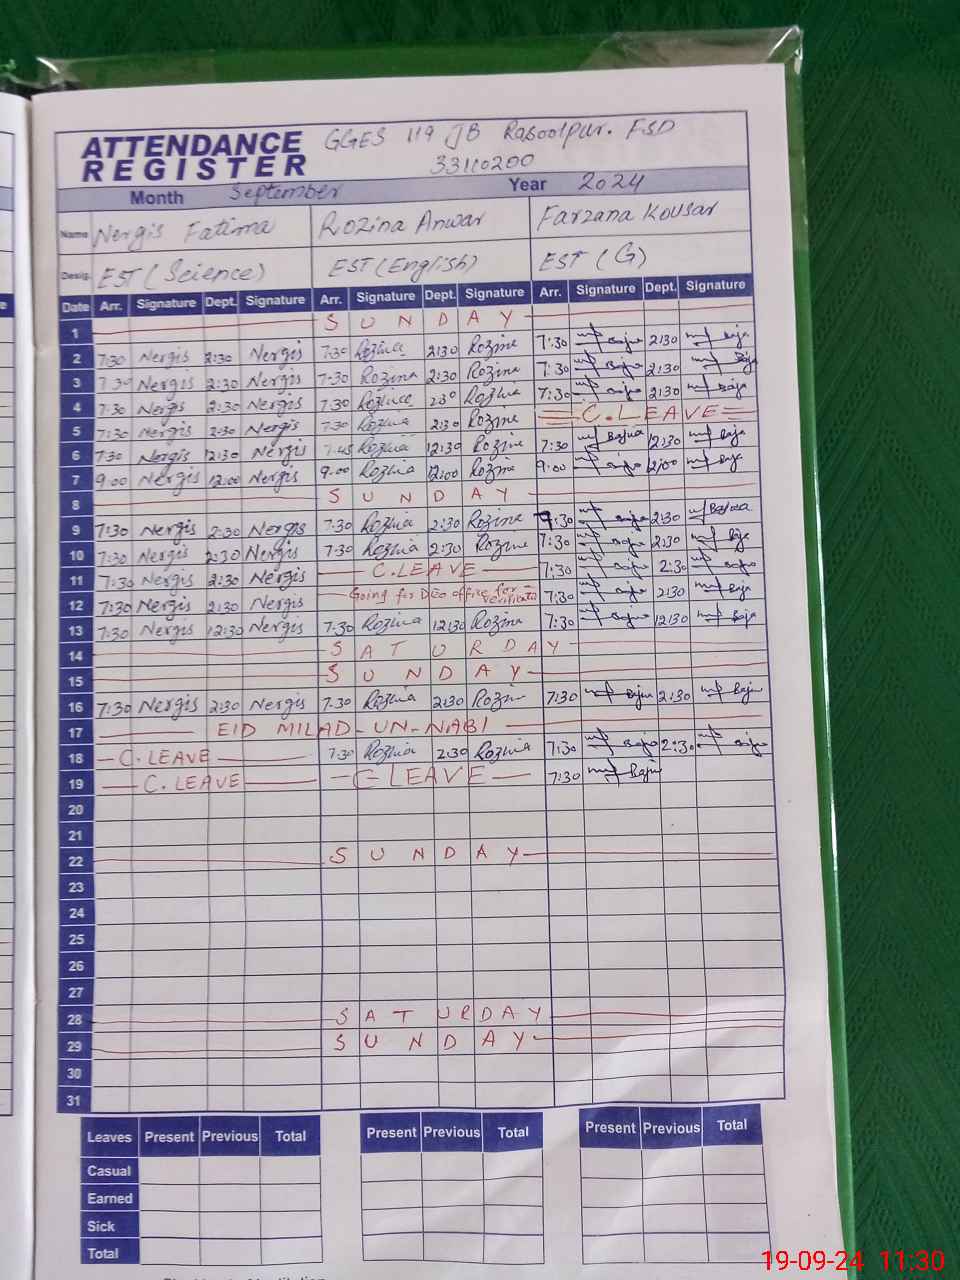 ATTENDANCE REGISTER GGES 119 JB Rasoolpur. FSD
33110200
Month September Year 2024
Name Nergis Fatima Rozina Anwar Farzana Kousar
Desig. EST (Science) EST (English) EST (G)
Date Arr. Signature Dept. Signature Arr. Signature Dept. Signature Arr. Signature Dept. Signature
1 SUNDAY
2 7:30 Nergis 2:30 Nergis 7:30 Rozina 2:30 Rozine 7:30 2:30
3 7:30 Nergis 2:30 Nergis 7:30 Rozina 2:30 Rozina 7:30 2:30
4 7:30 Nergis 2:30 Nergis 7:30 2:30 Rozina 7:30 2:30
5 7:30 Nergis 2:30 Nergis 7:30 Rozina 2:30 Rozine C.LEAVE
6 7:30 Nergis 12:30 Nergis 7:45 Rozina 12:30 Rozine 7:30 Bajwa 12:30
7 9:00 Nergis 12:00 Nergis 9:00 Rozina 12:00 Rozina 9:00 12:00
8 SUNDAY
9 7:30 Nergis 2:30 Nergis 7:30 Rozina 2:30 Rozine 7:30 2:30 Bajwa
10 7:30 Nergis 2:30 Nergis 7:30 Rozina 2:30 Rozine 7:30 2:30
11 7:30 Nergis 2:30 Nergis C.LEAVE 7:30 2:30
12 7:30 Nergis 2:30 Nergis Going for DEO office for verification 7:30 2:30
13 7:30 Nergis 12:30 Nergis 7:30 Rozina 12:30 Rozina 7:30 12:30
14 SATURDAY
15 SUNDAY
16 7:30 Nergis 2:30 Nergis 7:30 Rozina 2:30 Rozin 7:30 2:30
17 EID MILAD-UN-NABI
18 C.LEAVE 7:30 Rozina 2:30 Rozina 7:30 2:30
19 C.LEAVE C-LEAVE 7:30
20
21
22 SUNDAY
23
24
25
26
27
28 SATURDAY
29 SUNDAY
30
31
Leaves Present Previous Total Present Previous Total Present Previous Total
Casual
Earned
Sick
Total
19-09-24 11:30